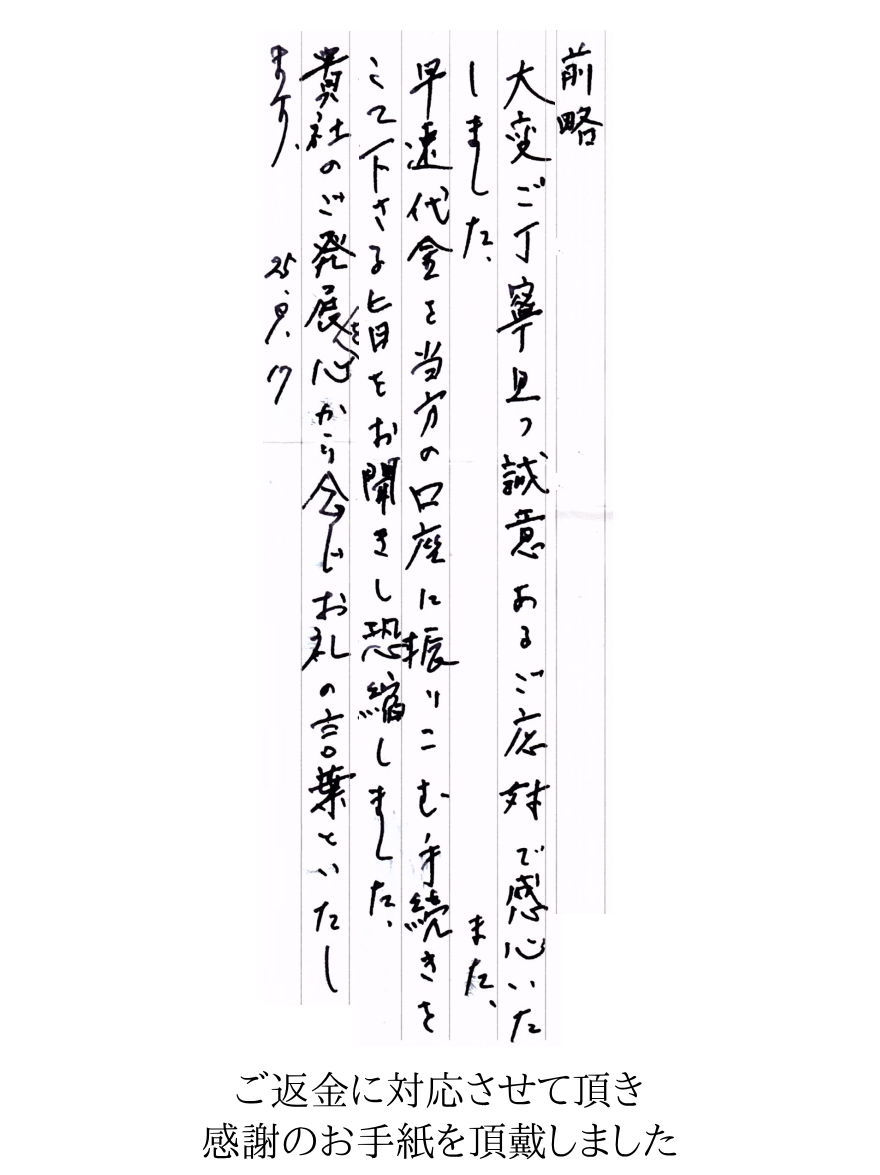 前略
大変ご丁寧且つ誠意あるご応対で感心いた
しました、また、
早速代金を当方の口座に振りこむ手続きを
して下さる旨をお聞きし恐縮しました、
貴社のご発展を心から念じお礼の言葉といたし
ます、
ご返金に対応させて頂き
感謝のお手紙を頂戴しました